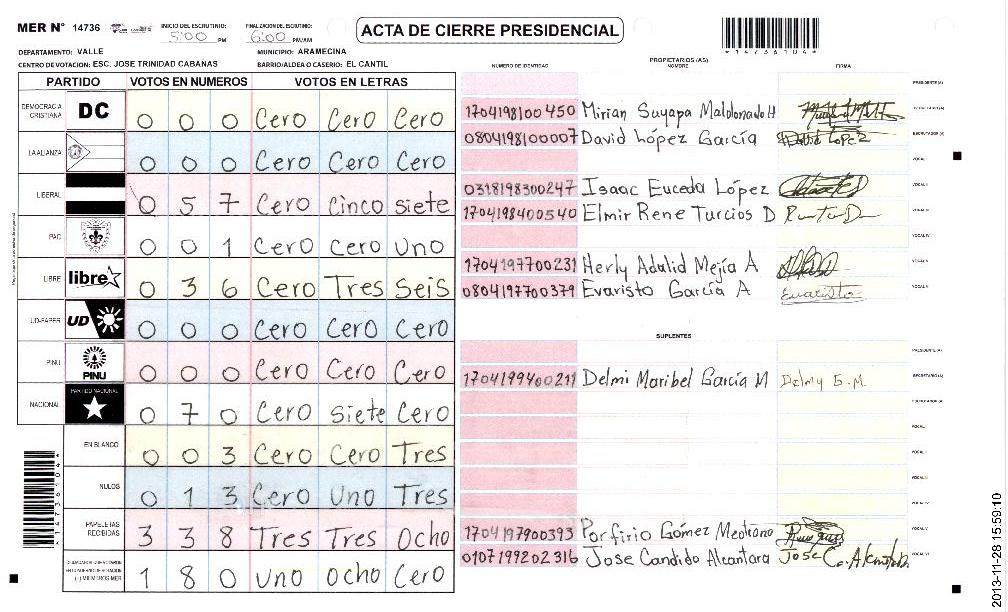 MER N° 14736
INICIO DEL ESCRUTINIO: 5:00 PM
FINALIZACION DEL ESCRUTINIO: 6:00 PM/AM
ACTA DE CIERRE PRESIDENCIAL
*14736104*
DEPARTAMENTO: VALLE
MUNICIPIO: ARAMECINA
CENTRO DE VOTACION: ESC. JOSE TRINIDAD CABANAS
BARRIO/ALDEA O CASERIO: EL CANTIL
PARTIDO VOTOS EN NUMEROS VOTOS EN LETRAS
DEMOCRACIA CRISTIANA DC 0 0 0 Cero Cero Cero
LA ALIANZA 0 0 0 Cero Cero Cero
LIBERAL 0 5 7 Cero Cinco siete
PAC 0 0 1 Cero cero uno
LIBRE libre 0 3 6 Cero Tres Seis
UD-FAPER UD 0 0 0 Cero Cero Cero
PINU PINU 0 0 0 Cero Cero Cero
NACIONAL PARTIDO NACIONAL 0 7 0 Cero siete Cero
EN BLANCO 0 0 3 Cero Cero Tres
NULOS 0 1 3 Cero Uno Tres
PAPELETAS RECIBIDAS 3 3 8 Tres Tres Ocho
1 8 0 uno ocho Cero
*14736104*
PROPIETARIOS (AS)
NUMERO DE IDENTIDAD NOMBRE FIRMA
PRESIDENTE (A)
1704198100450 Mirian Suyapa Maldonado H SECRETARIO (A)
0804198100007 David López García David Lopez ESCRUTADOR (A)
VOCAL I
0318198300247 Isaac Euceda López VOCAL II
1704198400540 Elmir Rene Turcios D VOCAL III
VOCAL IV
1704197700231 Herly Adalid Mejía A VOCAL V
0804197700379 Evaristo García A Evaristo
SUPLENTES
PRESIDENTE (A)
1704199400211 Delmi Maribel García M Delmy G.M. SECRETARIO (A)
ESCRUTADOR (A)
VOCAL I
VOCAL II
VOCAL III
VOCAL IV
1704197900393 Porfirio Gómez Medrano VOCAL V
0107199202316 Jose Candido Alcantara Jose C. Alcantara VOCAL VI
2013-11-28 15:59:10